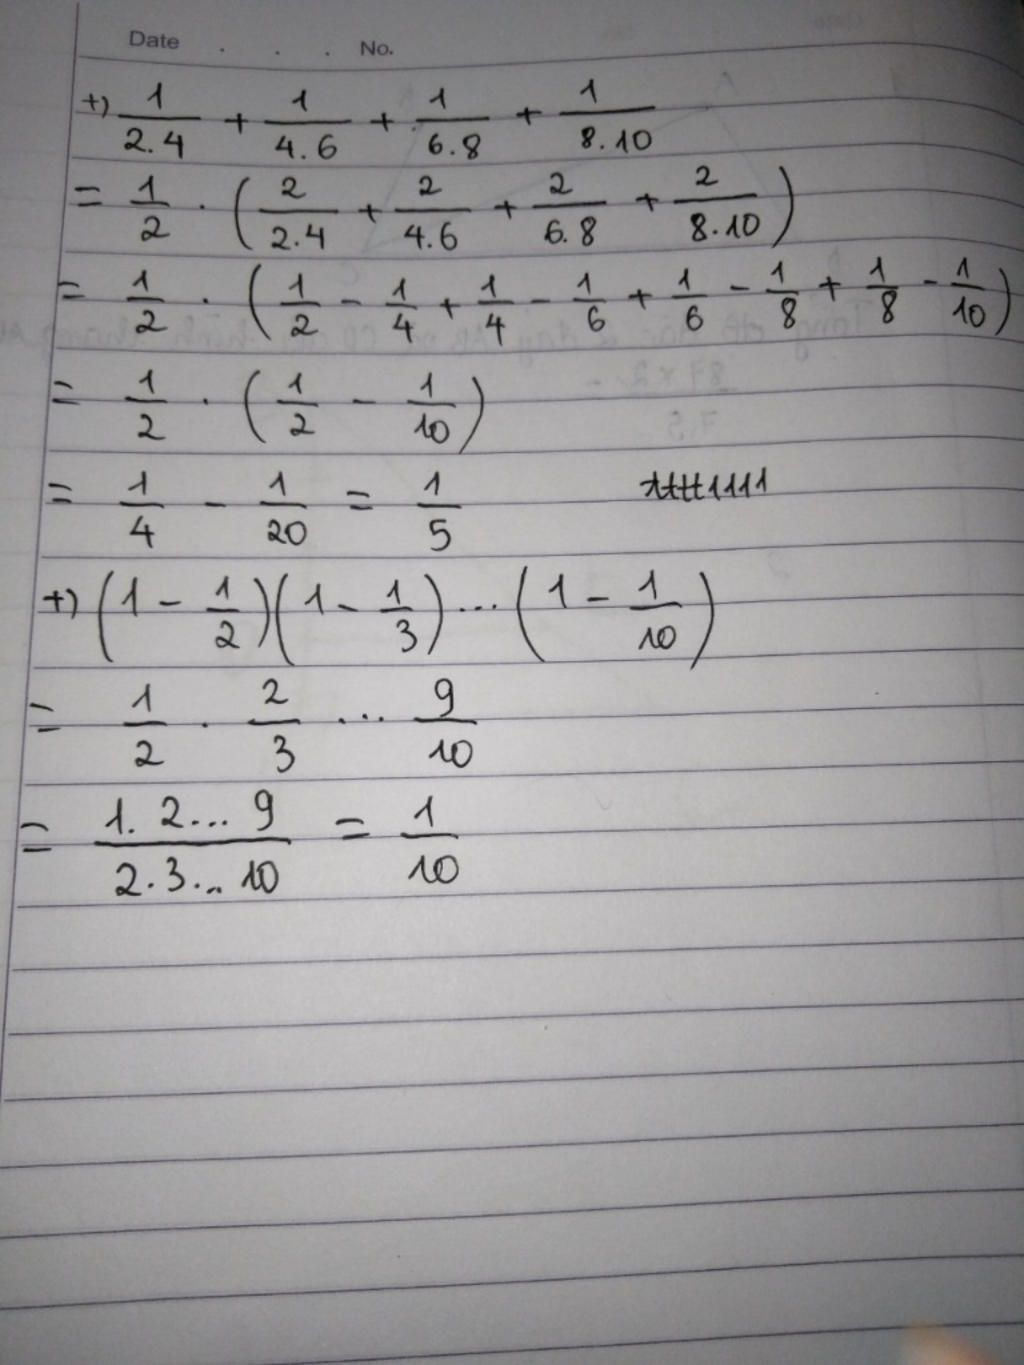 Date . . . No.
+) 1/2.4 + 1/4.6 + 1/6.8 + 1/8.10
= 1/2 . (2/2.4 + 2/4.6 + 2/6.8 + 2/8.10)
= 1/2 . (1/2 - 1/4 + 1/4 - 1/6 + 1/6 - 1/8 + 1/8 - 1/10)
= 1/2 . (1/2 - 1/10)
= 1/4 - 1/20 = 1/5
+) (1 - 1/2)(1 - 1/3)...(1 - 1/10)
= 1/2 . 2/3 ... 9/10
= 1.2...9/2.3...10 = 1/10